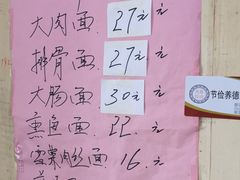 大肉面 27元
排骨面 27元
大肠面 30元
熏鱼面 22.元
雪菜肉丝面 16.元
节俭养德